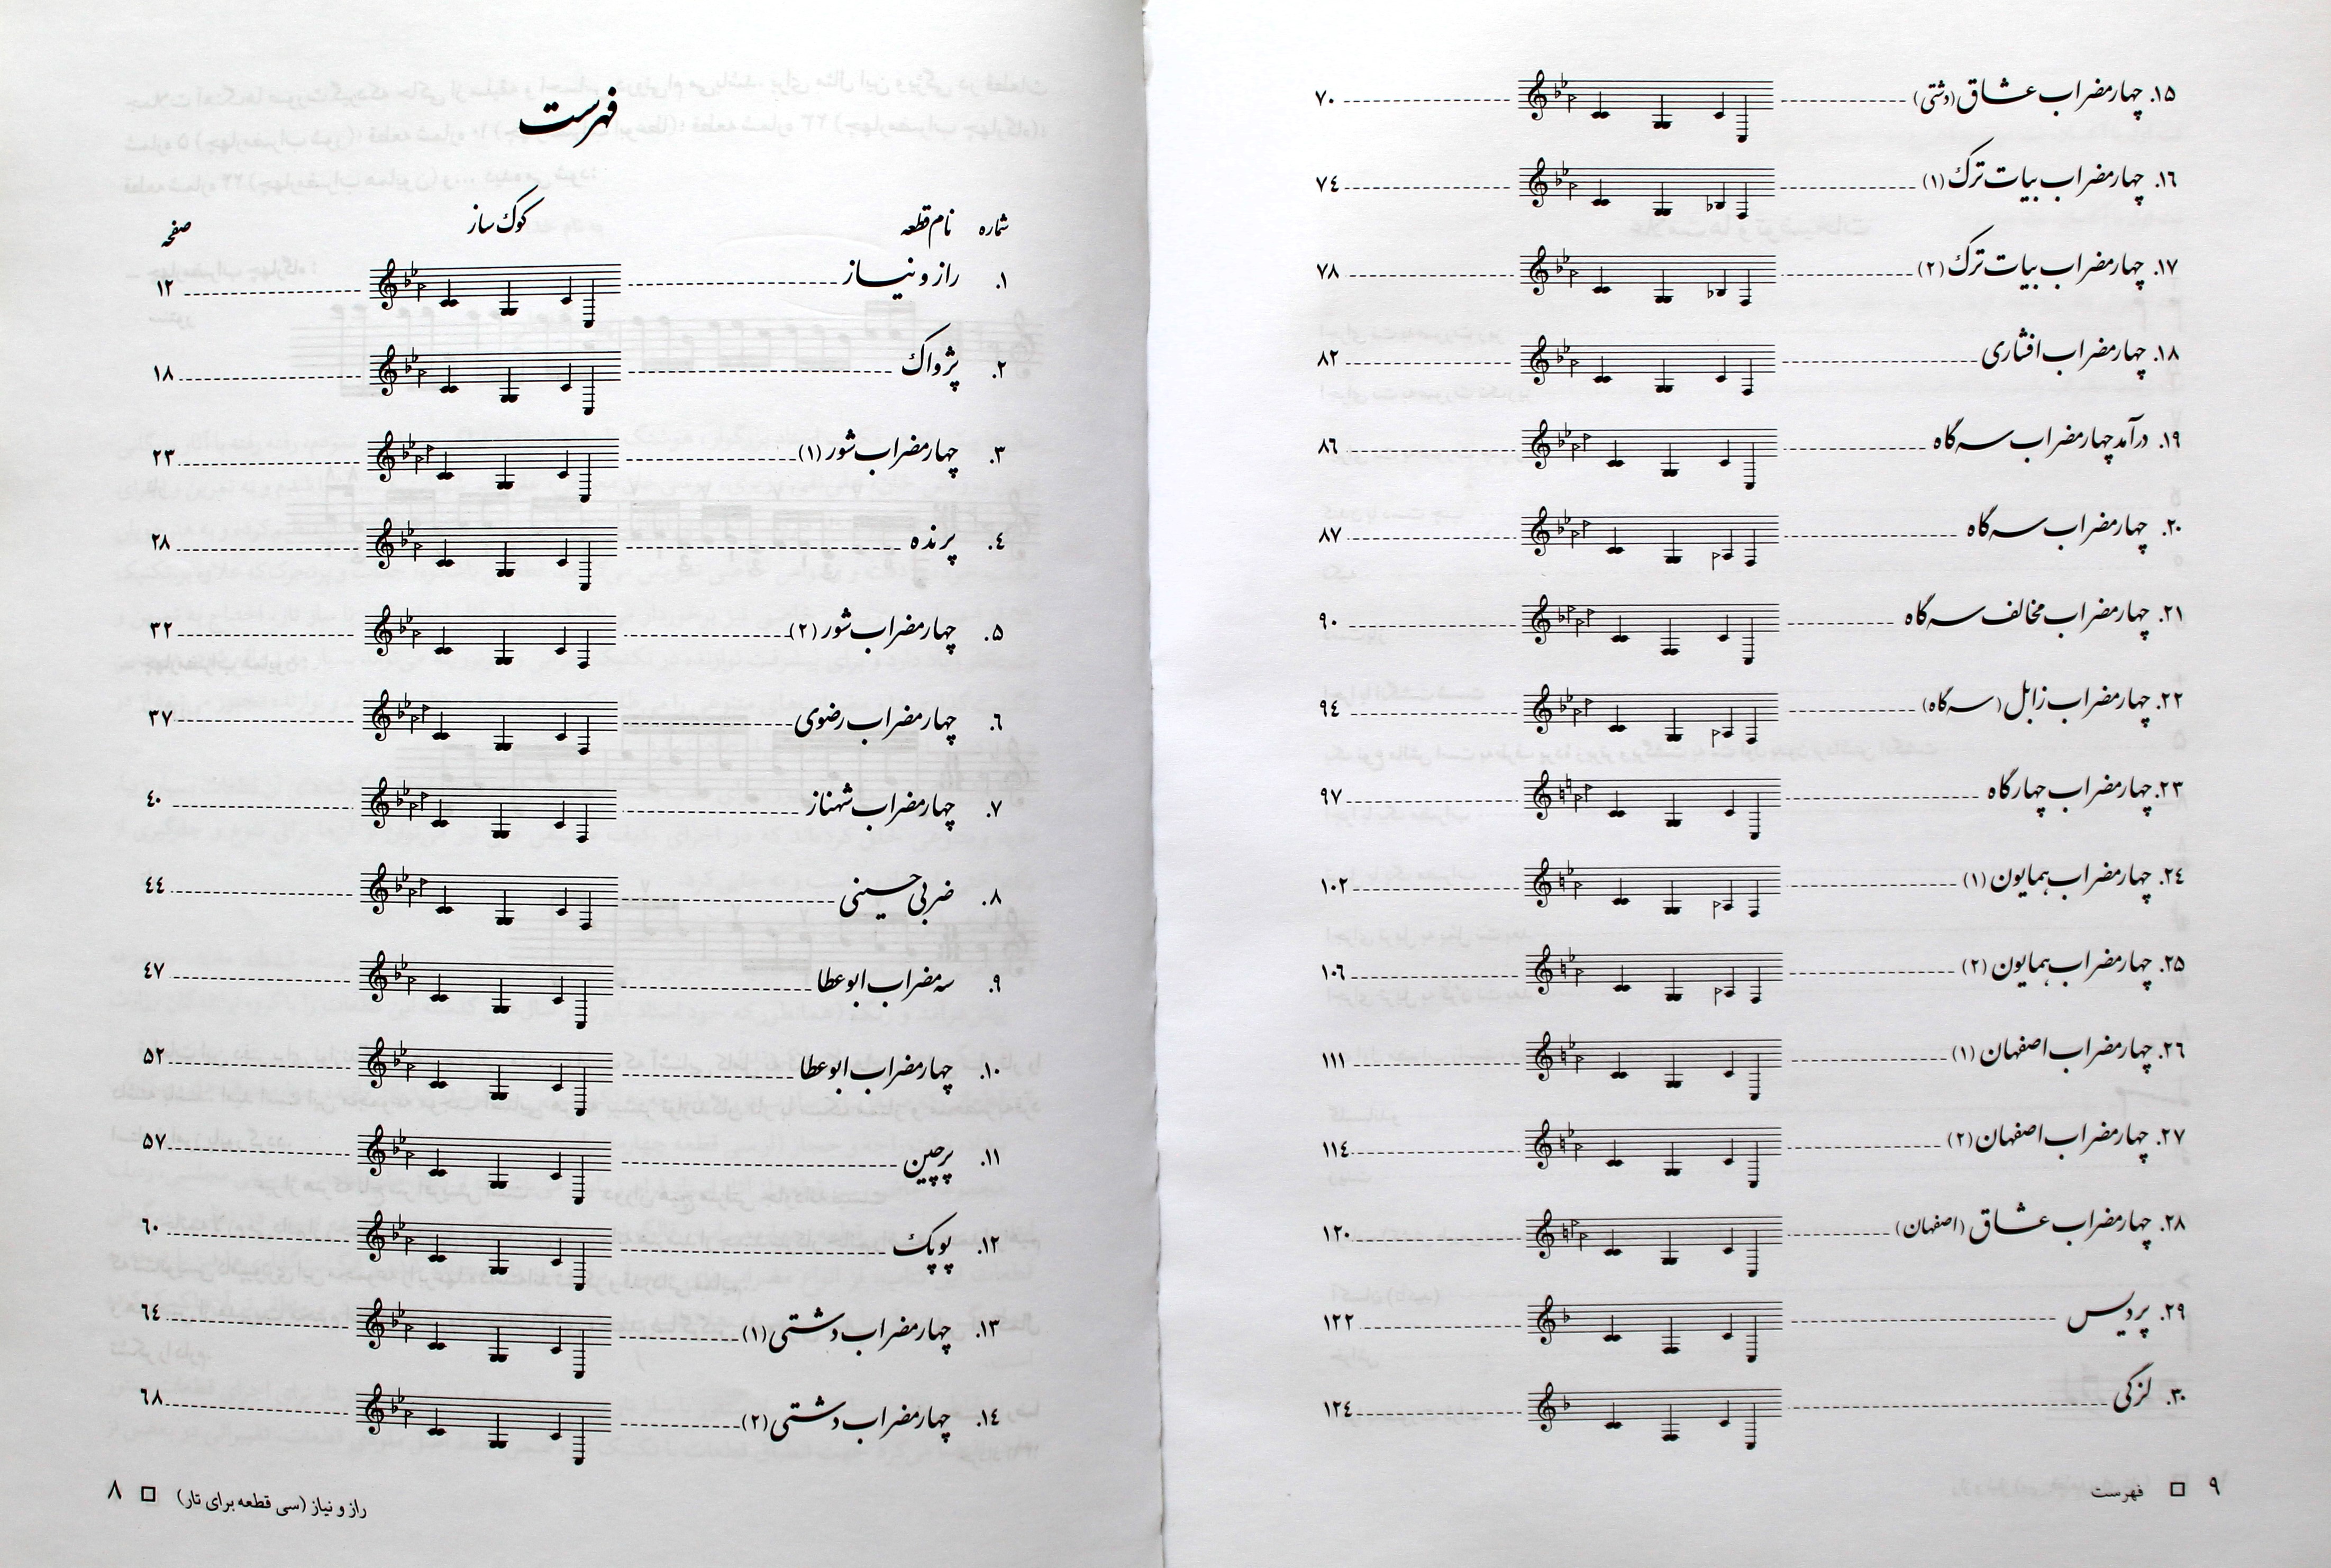 فهرست
شماره نام قطعه کوک ساز صفحه
۱. راز و نیاز ۱۲
۲. پژواک ۱۸
۳. چهارمضراب شور (۱) ۲۳
۴. پرنده ۲۸
۵. چهارمضراب شور (۲) ۳۲
۶. چهارمضراب رضوی ۳۷
۷. چهارمضراب شهناز ۴۰
۸. ضربی حسینی ۴۴
۹. سه مضراب ابوعطا ۴۷
۱۰. چهارمضراب ابوعطا ۵۲
۱۱. پرچین ۵۷
۱۲. پوپک ۶۰
۱۳. چهارمضراب دشتی (۱) ۶۴
۱۴. چهارمضراب دشتی (۲) ۶۸
راز و نیاز (سی قطعه برای تار) ۸
۱۵. چهارمضراب عشاق (دشتی) ۷۰
۱۶. چهارمضراب بیات ترک (۱) ۷۴
۱۷. چهارمضراب بیات ترک (۲) ۷۸
۱۸. چهارمضراب افشاری ۸۲
۱۹. درآمد چهارمضراب سه گاه ۸۶
۲۰. چهارمضراب سه گاه ۸۷
۲۱. چهارمضراب مخالف سه گاه ۹۰
۲۲. چهارمضراب زابل (سه گاه) ۹۴
۲۳. چهارمضراب چهارگاه ۹۷
۲۴. چهارمضراب همایون (۱) ۱۰۲
۲۵. چهارمضراب همایون (۲) ۱۰۶
۲۶. چهارمضراب اصفهان (۱) ۱۱۱
۲۷. چهارمضراب اصفهان (۲) ۱۱۴
۲۸. چهارمضراب عشاق (اصفهان) ۱۲۰
۲۹. پردیس ۱۲۲
۳۰. لزکی ۱۲۴
۹ فهرست